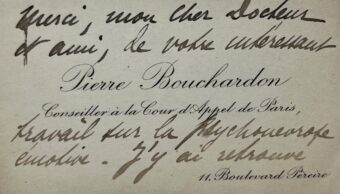 merci, mon cher Docteur
et ami, de votre intéressant
Pierre Bouchardon
Conseiller à la Cour d'Appel de Paris,
travail sur la Psychonévrose
émotive. J'y ai retrouvé
11, Boulevard Péreire